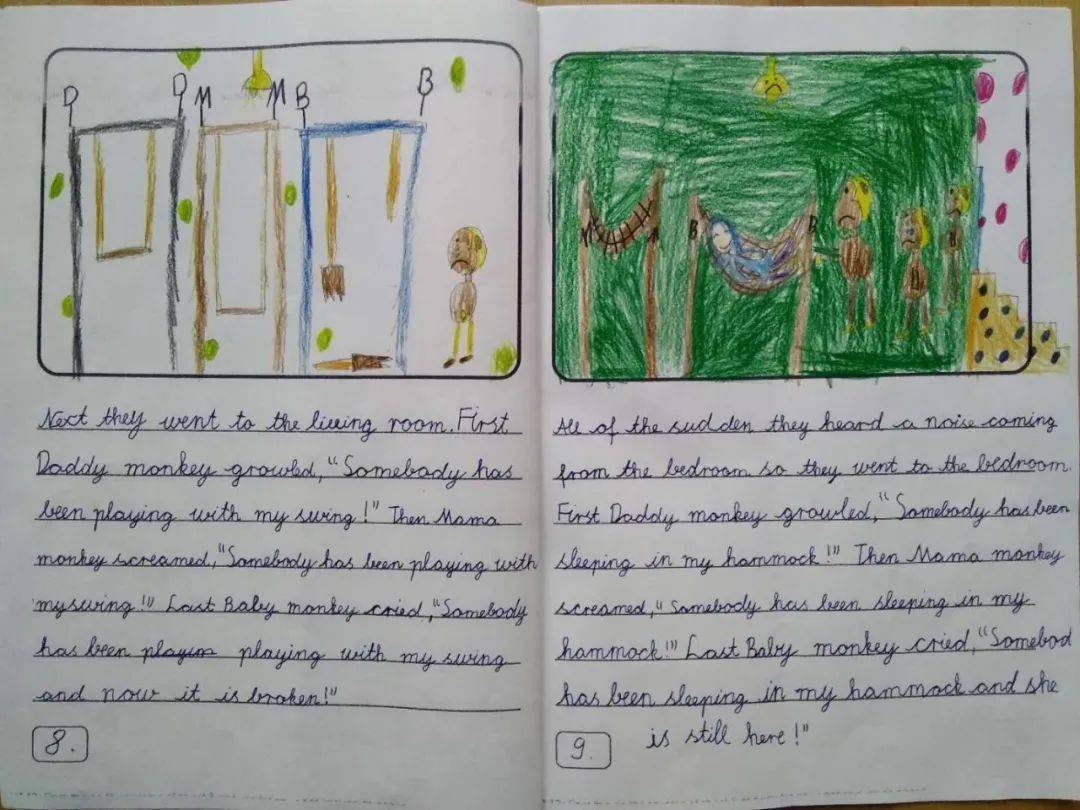 D D M M B B
Next they went to the living room. First
Daddy monkey growled, "Somebody has
been playing with my swing!" Then Mama
monkey screamed, "Somebody has been playing with
my swing!" Last Baby monkey cried, "Somebody
has been playing with my swing
and now it is broken!"
8.
M M B B
All of the sudden they heard a noise coming
from the bedroom so they went to the bedroom.
First Daddy monkey growled, "Somebody has been
sleeping in my hammock!" Then Mama monkey
screamed, "Somebody has been sleeping in my
hammock!" Last Baby monkey cried, "Somebod
has been sleeping in my hammock and she
is still here!"
9.